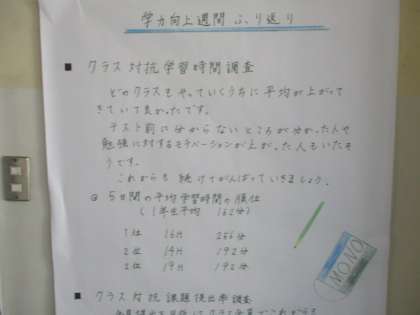 学力向上週間 ふり返り
■ クラス対抗学習時間調査
どのクラスもやっていくうちに平均が上がって
きていて良かったです。
テスト前に分からないところが分かった人や
勉強に対するモチベーションが上がった人もいたそ
うです。
これからも続けてがんばっていきましょう。
5日間の平均学習時間の順位
(1年生平均 162分)
1位
2位 192分
3位 192分
MONO
■ クラス対抗課題提出率調査